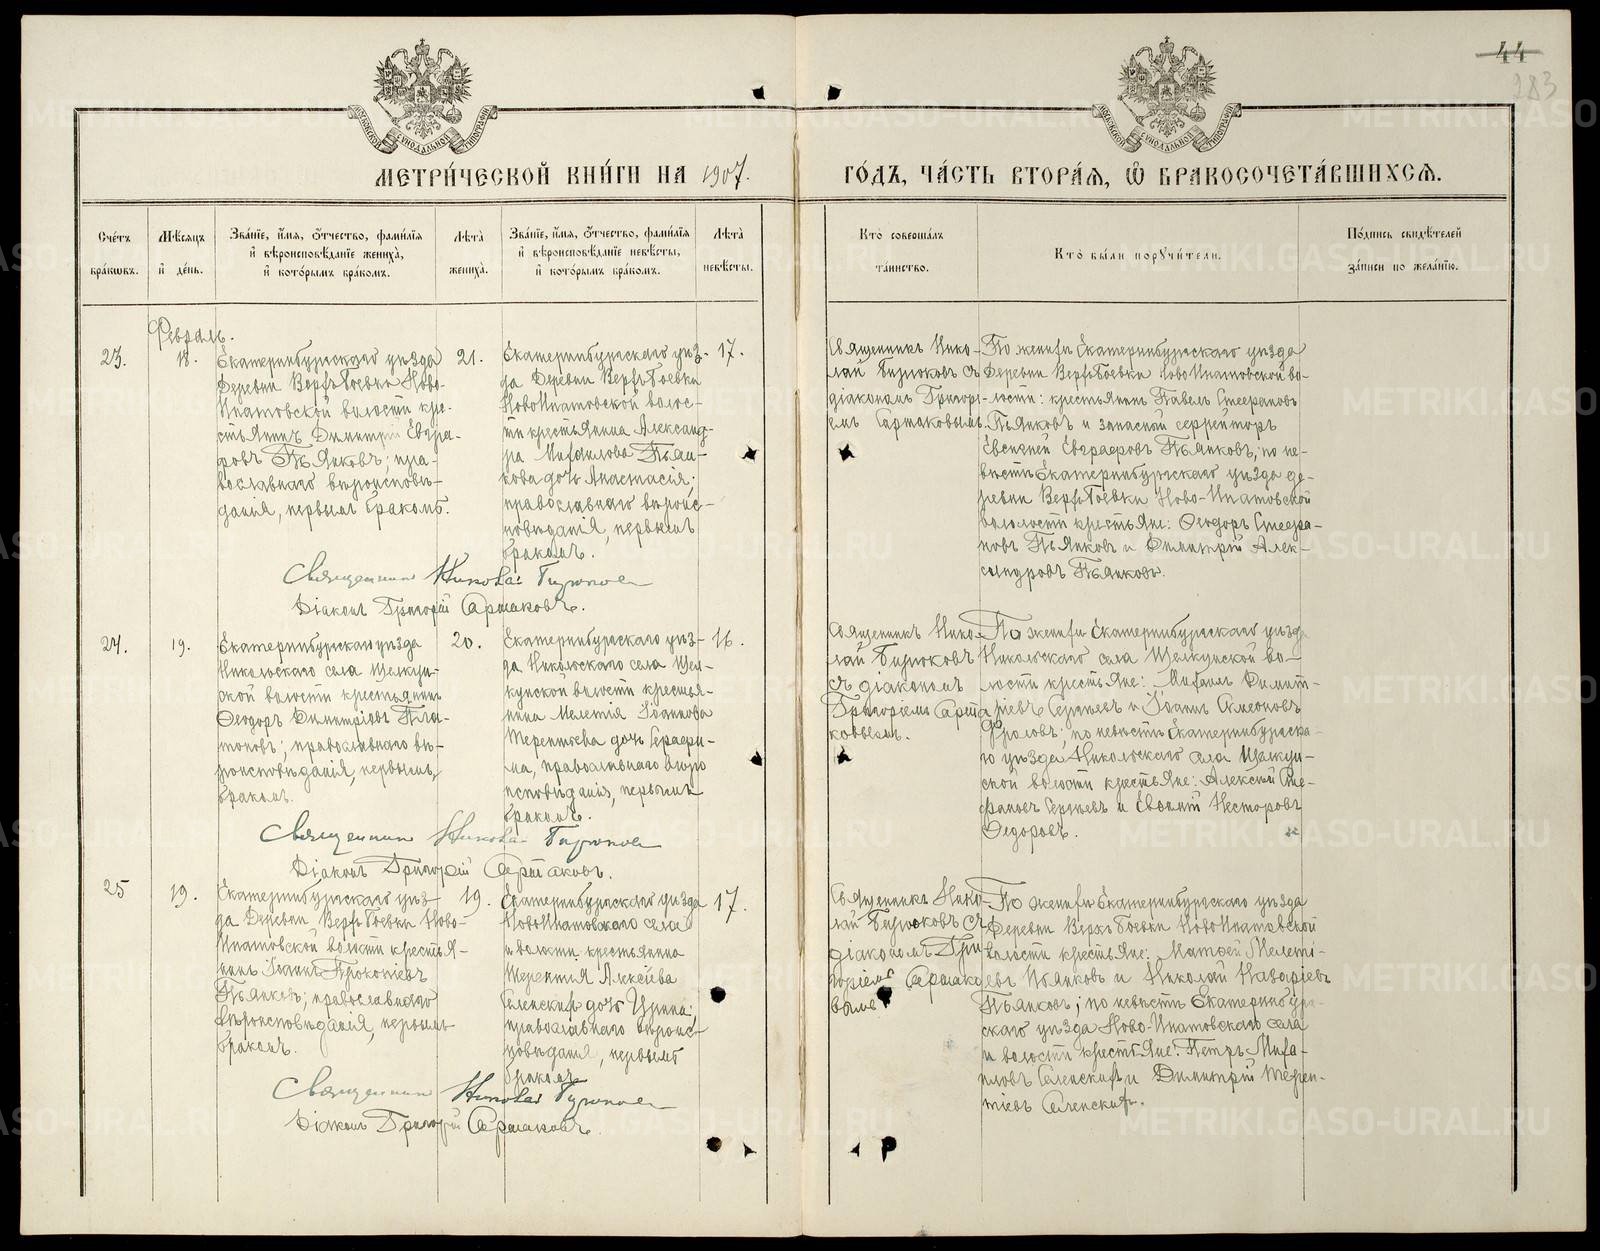 44
283
МЕТРИ́ЧЕСКОЙ КНИ́ГИ НА 1907.
ГО́ДЪ, ЧА́СТЬ ВТОРА́Я, Ѿ БРАКОСОЧЕТА́ВШИХСѦ.
Сче́тъ бра́кѡвъ.
Мѣ́сяцъ и де́нь.
Зва́нїе, и́мя, ѻ́тчество, фами́лїя и вѣроисповѣ́данїе жениха̀, и кото́рымъ бра́комъ.
Лѣ́та жениха̀.
Зва́нїе, и́мя, ѻ́тчество, фами́лїя и вѣроисповѣ́данїе невѣ́сты, и кото́рымъ бра́комъ.
Лѣ́та невѣ́сты.
Кто̀ соверша́лъ та́инство.
Кто̀ бы́ли поручи́тели.
По́дпись свидѣ́телей за́писи по жела́нїю.
Февраль.
23.
18.
Екатеринбургскаго уѣзда
Деревни Верхъ Боевки Ново-
Ипатовской волости кре-
стьянинъ Димитрій Евгра-
фовъ Пьянковъ; пра-
вославнаго вѣроисповѣ-
данія, первымъ бракомъ.
21.
Екатеринбургскаго уѣз-
да Деревни Верхъ Боевки
Ново Ипатовской волос-
ти крестьянина Александ-
ра Михаилова Пьян-
кова дочь Анастасія;
православнаго вѣроис-
повѣданія, первымъ
бракомъ.
17.
Священникъ Нико-
лай Бирюковъ съ
діакономъ Григорі-
емъ Сартаковымъ.
По женихѣ Екатеринбургскаго уѣзда
Деревни Верхъ Боевки Ново Ипатовской во-
лости: крестьянинъ Павелъ Стефановъ
Пьянковъ и запасной ефрейторъ
Евгеній Евграфовъ Пьянковъ; по не-
вѣстѣ Екатеринбургскаго уѣзда де-
ревни Верхъ Боевки Ново-Ипатовской
волости крестьяне: Ѳеодоръ Стефа-
новъ Пьянковъ и Димитрій Алек-
сандровъ Пьянковъ.
Священникъ Николай Бирюковъ
Діаконъ Григорій Сартаковъ.
24.
19.
Екатеринбургскаго уѣзда
Никольскаго села Щелкун-
ской волости крестьянинъ
Ѳеодоръ Димитріевъ Пла-
тоновъ; православнаго вѣ-
роисповѣданія, первымъ
бракомъ.
20.
Екатеринбургскаго уѣз-
да Никольскаго села Щел-
кунской волости крестья-
нина Мелетія Іоаннова
Терентьева дочь Серафи-
ма, православнаго вѣро
исповѣданія, первымъ
бракомъ.
16.
Священникъ Нико-
лай Бирюковъ
съ діакономъ
Григоріемъ Сарта
ковымъ.
По женихѣ Екатеринбургскаго уѣзда
Никольскаго села Щелкунской во-
лости крестьяне: Михаилъ Димит-
ріевъ Сергѣевъ и Іоаннъ Симеоновъ
Фроловъ; по невѣстѣ Екатеринбургска-
го уѣзда Никольскаго села Щелкун-
ской волости крестьяне: Алексѣй Сте-
фановъ Сергѣевъ и Несторовъ
Ѳедоровъ.
Священникъ Николай Бирюковъ
Діаконъ Григорій Сартаковъ.
25
19.
Екатеринбургскаго уѣз-
да Деревни Верхъ Боевки Ново-
Ипатовской волости крестья-
нинъ Іоаннъ Прокопіевъ
Пьянковъ; православнаго
вѣроисповѣданія, первымъ
бракомъ.
19.
Екатеринбургскаго уѣзда
Ново Ипатовскаго села
и волости крестьянина
Терентія Алексѣева
Селенскихъ дочь Ирина;
православнаго вѣроис-
повѣданія, первымъ
бракомъ.
17.
Священникъ Нико-
лай Бирюковъ съ
діакономъ Гри-
горіемъ Сартако
вымъ
По женихѣ Екатеринбургскаго уѣзда
Деревни Верхъ Боевки Ново Ипатовской
волости крестьяне: Матѳей Мелеті-
евъ Пьянковъ и Николай Назаріевъ
Пьянковъ; по невѣстѣ Екатеринбург-
скаго уѣзда Ново-Ипатовскаго села
и волости крестьяне: Петръ Миха-
иловъ Селенскихъ и Димитрій Терен-
тіевъ Селенскихъ.
Священникъ Николай Бирюковъ
Діаконъ Григорій Сартаковъ.
METRIKI.GASO-URAL.RU